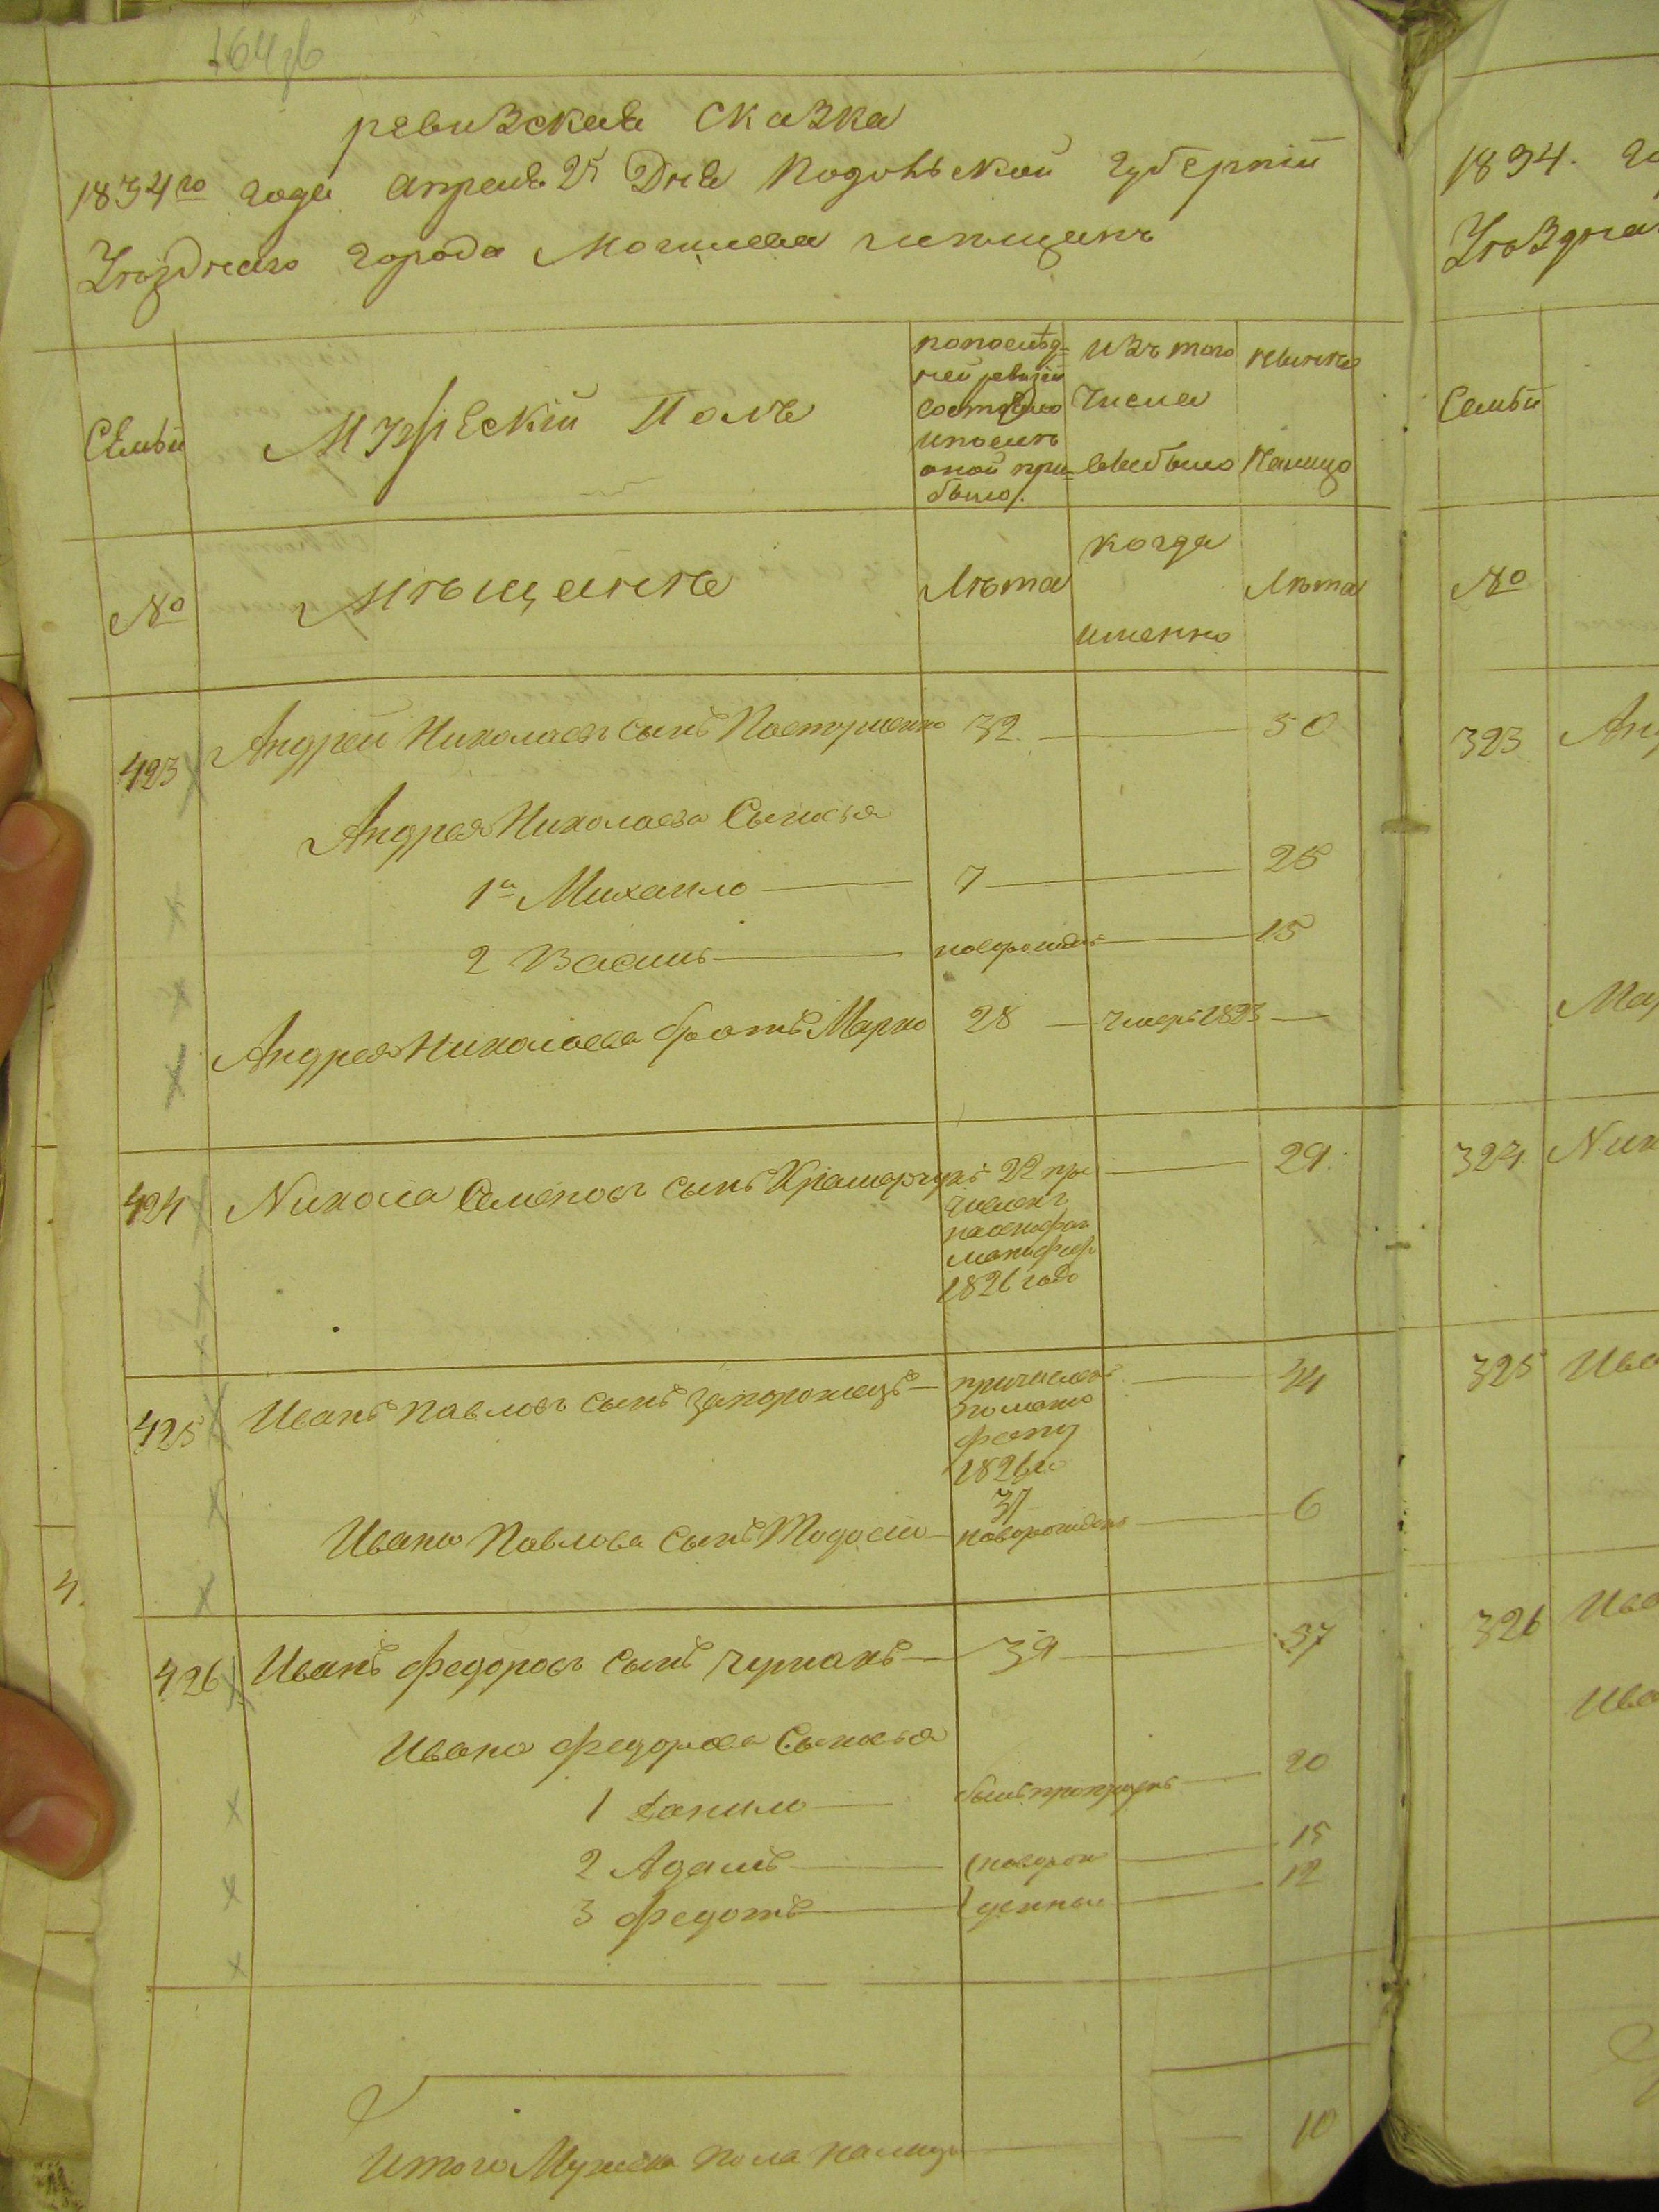 ревизская Сказка
1834го года апреля 25 Дня Подольской губерніи
Уѣзднаго города Могилева мещанъ
Семьи
Мужескій Полъ
попослѣд-
ней ревизіи
состояло
ипослѣ
оной при-
было.
изъ того
числа
выбыло
нынѣ
налицо
№
Мѣщанѣ
Лѣта
когда
именно
Лѣта
423 Андрей Николаевъ сынъ Пастушенко 32 50
Андрея Николаева Сыновья
1й Михайло 7 25
2 Василь новорожден 15
Андрея Николаева братъ Марко 28 умеръ 1823
424 Никола Семеновъ сынъ Крамарчукъ 22 при
численъ
1826 года
29
425 Иванъ Павловъ сынъ Запорожецъ причисленъ
по мани
фесту
1826го
37
44
Ивана Павлова сынъ Тодосій новорожденъ 6
426 Иванъ Федоровъ сынъ Чурканъ 39 57
Ивана Федорова Сыновья
1 Данило былъ пропущенъ 20
2 Адамъ новорож 15
3 Федотъ денные 12
Итого Мужеска пола налицо 10
1834. го
Уѣздна
Семьи
№
323 Анд
Мар
324 Ник
325 Ива
326 Ива
Ива